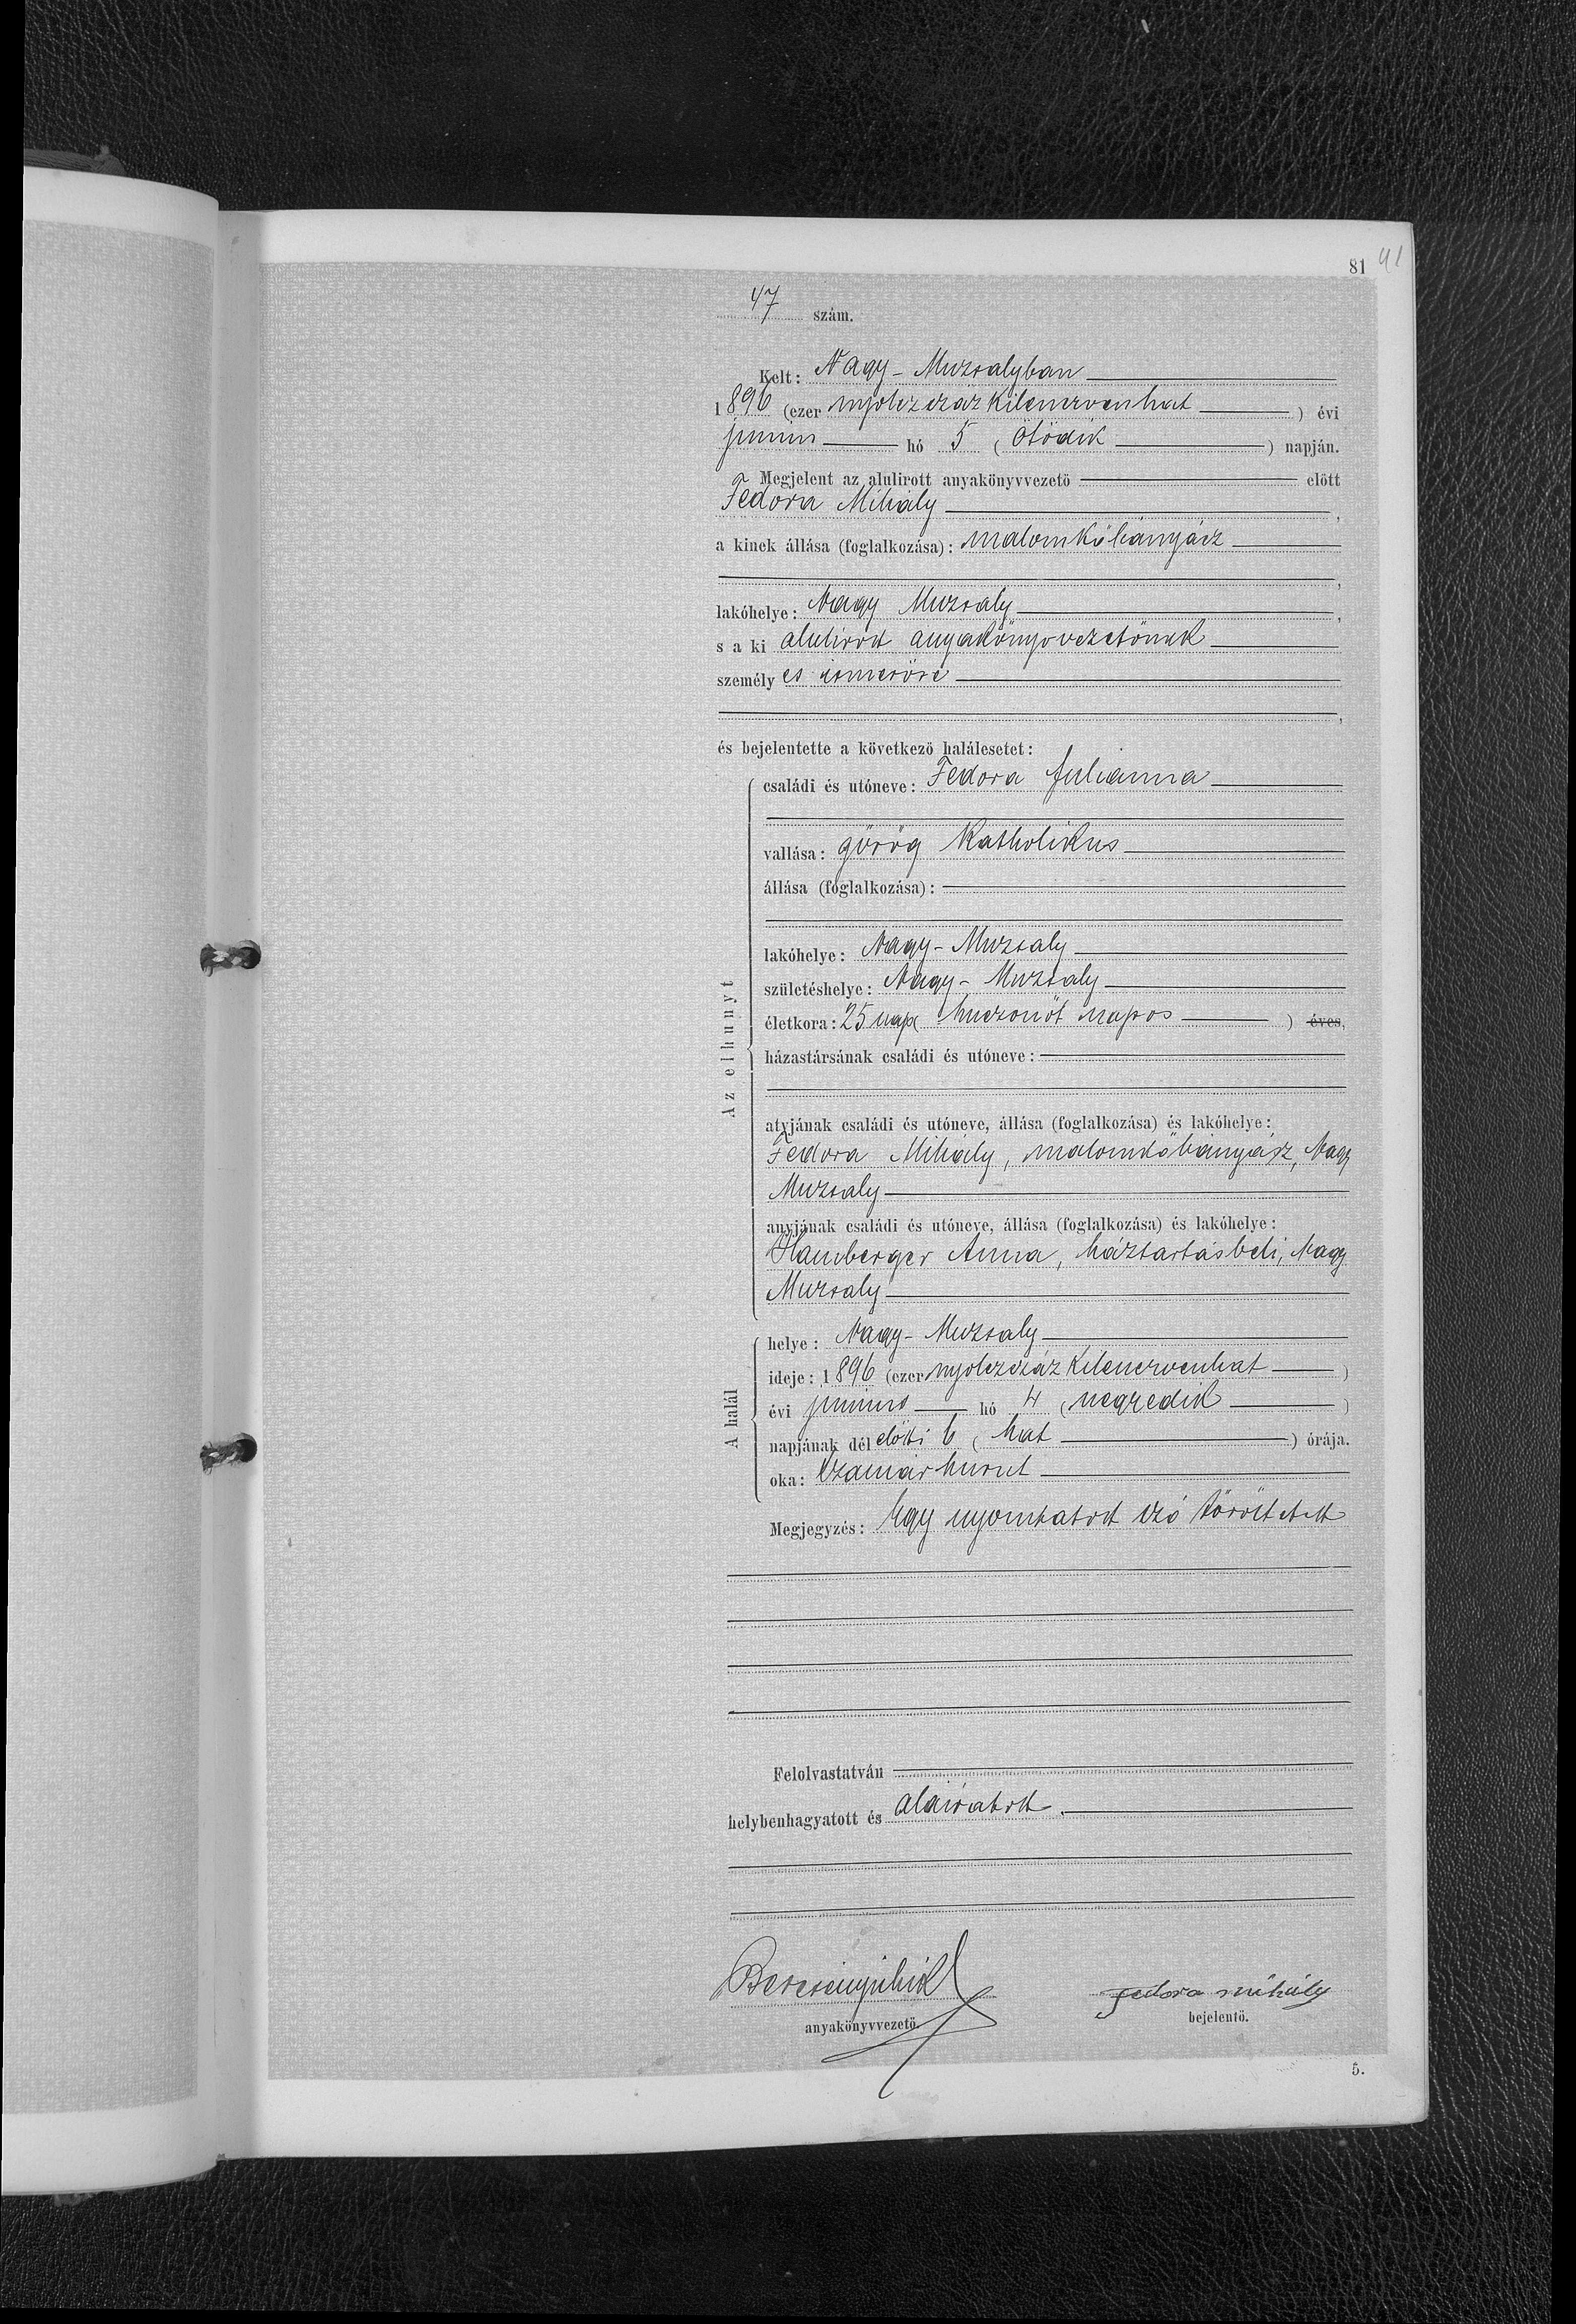 81 41
47 szám.
Kelt: Nagy-Muzsalyban
1896 (ezer nyolczszáz kilenczvenhat) évi
junius hó 5 (ötödik) napján.
Megjelent az alulirott anyakönyvvezető előtt
Fedora Mihály,
a kinek állása (foglalkozása): malomkőbányász
,
lakóhelye: Nagy Muzsaly,
s a ki alulirott anyakönyvvezetőnek
személyes ismerőse
,
és bejelentette a következő halálesetet:
Az elhunyt
családi és utóneve: Fedora Julianna
vallása: görög katholikus
állása (foglalkozása):
lakóhelye: Nagy-Muzsaly
születéshelye: Nagy-Muzsaly
életkora: 25 nap (huszonöt napos) éves,
házastársának családi és utóneve:
atyjának családi és utóneve, állása (foglalkozása) és lakóhelye:
Fedora Mihály, malomkőbányász, Nagy
Muzsaly
anyjának családi és utóneve, állása (foglalkozása) és lakóhelye:
Hamberger Anna, háztartásbeli, Nagy
Muzsaly
A halál
helye: Nagy-Muzsaly
ideje: 1896 (ezer nyolczszáz kilenczvenhat)
évi junius hó 4 (negyedik)
napjának délelőtti 6 (hat) órája.
oka: Szamárhurut
Megjegyzés: Egy nyomtatott szó töröltetett
Felolvastatván
helybenhagyatott és aláiratott.
anyakönyvvezető.
Fedora mihály
bejelentő.
5.